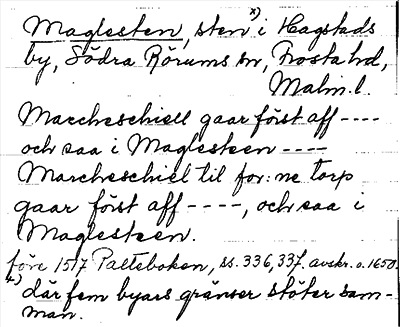 Maglesten, sten x) i Hagstads
by, Södra Rörums sn, Frosta hd,
Malm. l.
Marcheschiell gaar först aff ----
och saa i Maglesteen ----
Marcheschiel til for: ne torp
gaar först aff ----, och saa i
Maglesteen.
före 1517 Palteboken, ss. 336, 337. avskr. o. 1650.
x) där fem byars gränser stöter sam-
man.